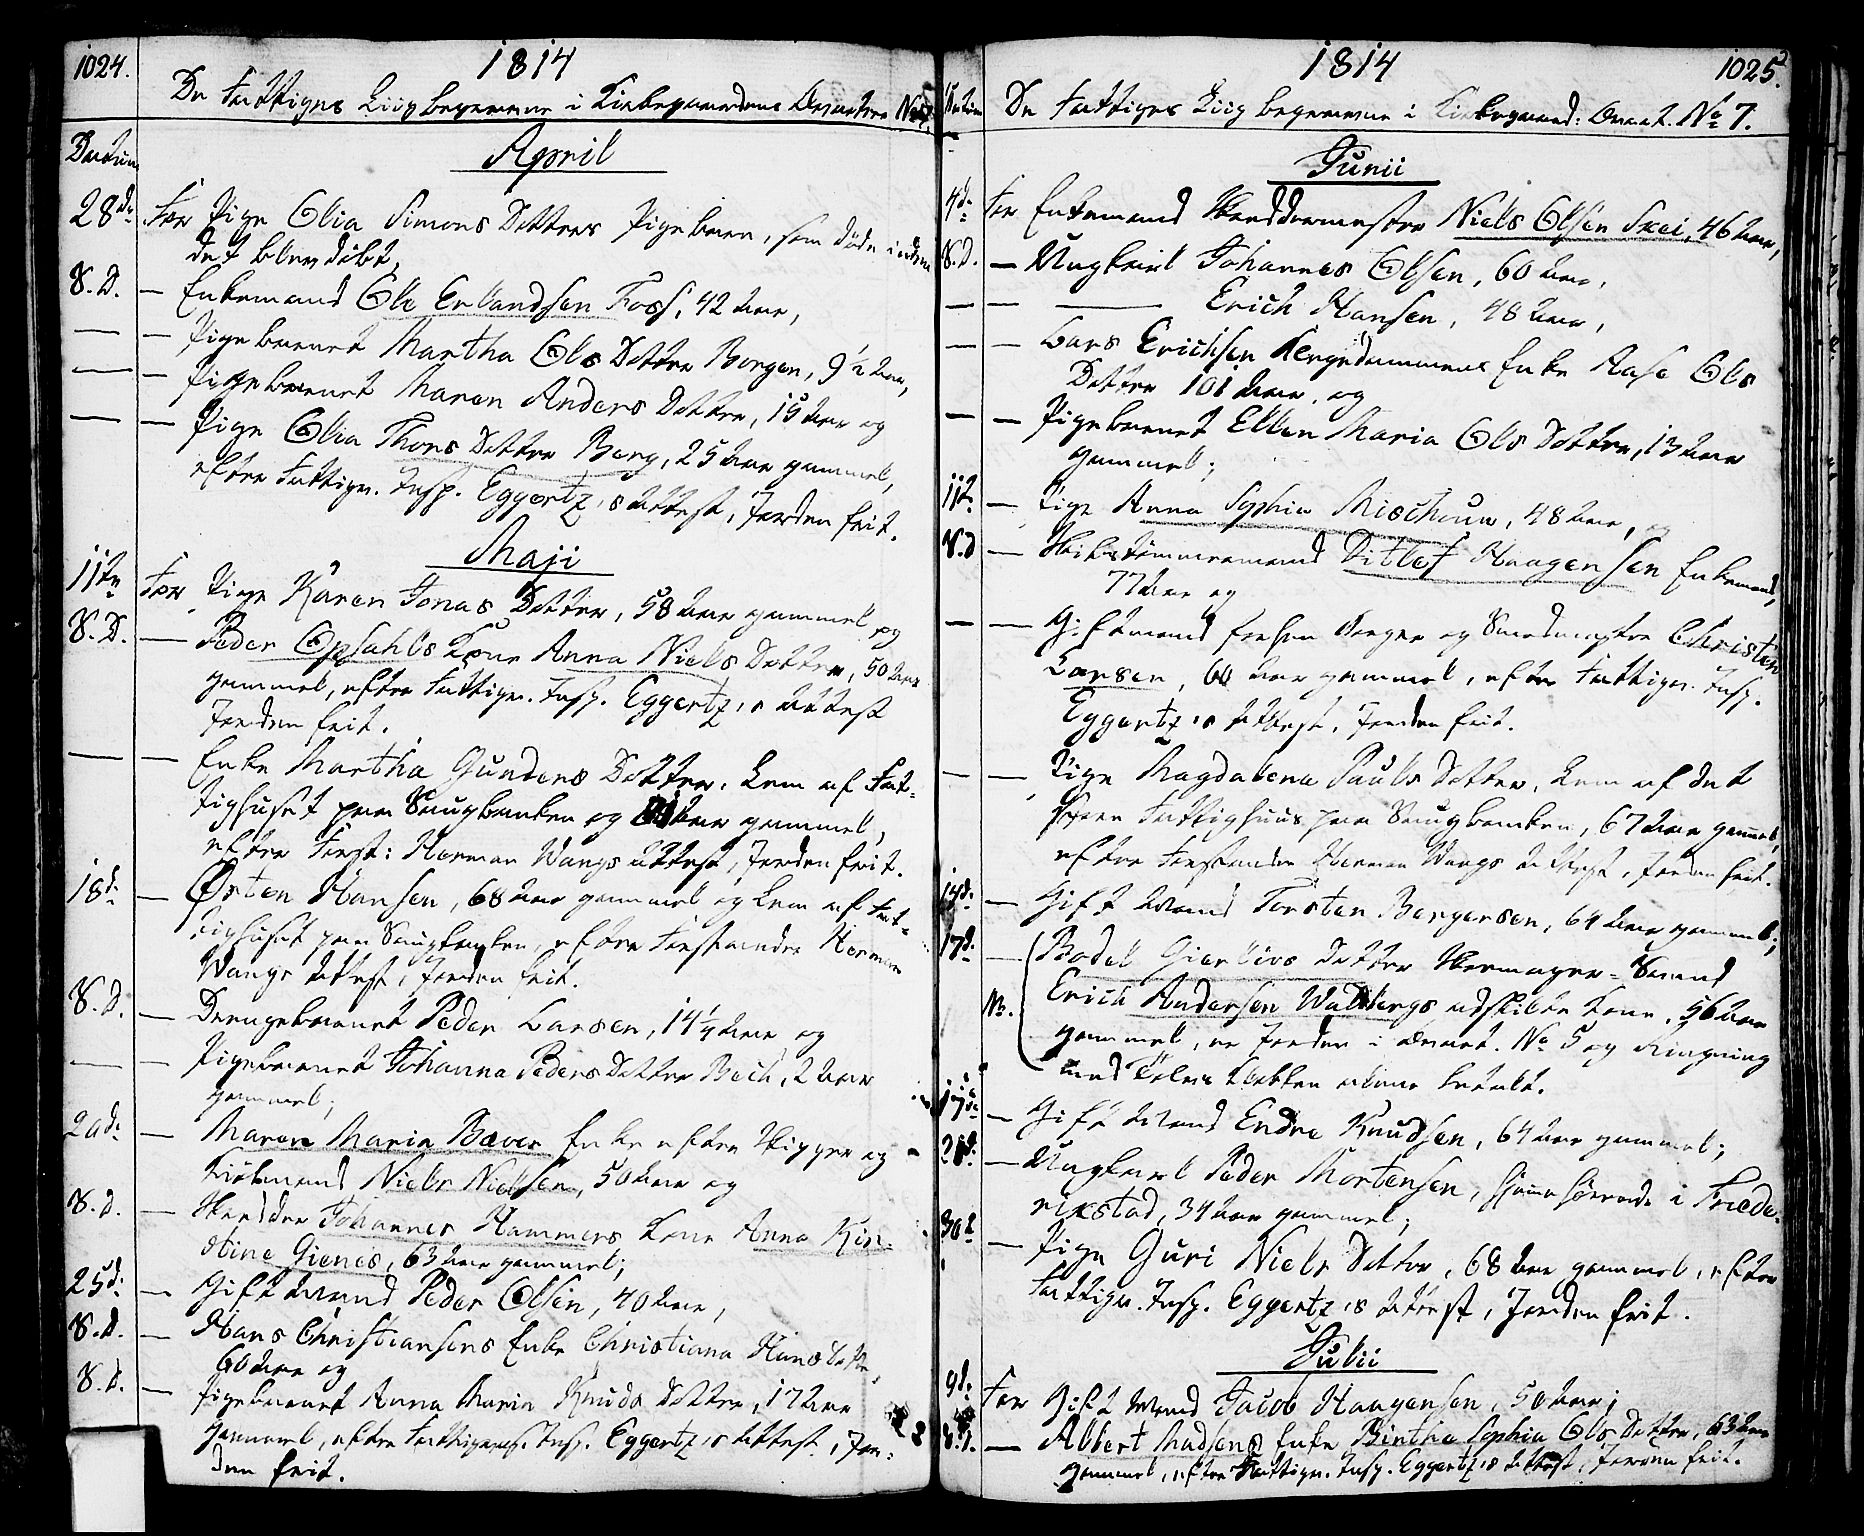 1024.
1814
De Fattiges Liig begravne i Kirkegaardens Qvarteer No 7.
Datum
April
28de For Pige Olia Simons Datters Pigebarn, som döde inden
det blev döbt,
S. D. — Enkemand Ole Erlandsen Foss, 42 Aar,
— — Pigebarnet Martha Ols Datter Borgen, 9 1/2 Aar,
— — Pigebarnet Maren Anders Datter, 15 Aar og
— — Pige Olia Thors Datter Berg, 25 Aar gammel,
efter Fattigv. Insp. Eggertz's Attest, Jorden frit.
Maji
11te For Pige Karen Jonas Datter, 58 Aar gammel og
S. D. — Peder Opsahls Kone Anna Niels Datter, 50 Aar
gammel, efter Fattigv. Insp. Eggertz's Attest
Jorden frit.
— — Enke Martha Gunders Datter, Lem af Fat-
tighuset paa Saugbanken og Aar gammel,
efter Forst: Herman Wangs Attest, Jorden frit.
18de — Østen Hansen, 68 Aar gammel og Lem af Fat-
tighuset paa Saugbanken, efter Forstander Herman
Wangs Attest, Jorden frit.
S. D. — Drengebarnet Peder Larsen, 14 1/4 Aar og
— — Pigebarnet Johanna Peders Datter Bech, 2 Aar
gammel;
20de — Maren Maria Bæver Enke efter Skipper og
Kiöbmand Niels Nielsen, 50 Aar og
S. D. — Skrædder Johannes Hammers Kone Anna Kir-
stine Gienes, 63 Aar gammel;
25de — Gift Mand Peder Olsen, 40 Aar,
S. D. — Hans Christiansens Enke Christiana Hans Datter,
60 Aar og
S. D. — Pigebarnet Anna Maria Knuds Datter, 17 Aar
gammel, efter Fattigvæs. Insp. Eggertz's Attest, Jor-
den frit.
1814
1025.
Datum
De Fattiges Liig begravne i Kirkegaard: Qvart. No 7.
Junii
4de For Enkemand Skræddermester Niels Olsen Skei, 46 Aar,
S. D. — Ungkarl Johannes Olsen, 60 Aar,
— — — Erich Hansen, 48 Aar,
— — Lars Erichsen Enke Aase Ols
Datter 101 Aar, og
— — Pigebarnet Ellen Maria Ols Datter, 13 Aar
gammel;
11te — Pige Anna Sophia Mischoun, 48 Aar, og
S. D — Skibstömmermand Ditlef Haagensen Enkemand,
77 Aar og
— — Gift Mand forhen Borger og Smedmester Christen
Larsen, 60 Aar gammel, efter Fattigv. Insp.
Eggertz's Attest, Jorden frit.
— — Pige Magdalena Pauls Datter, Lem af det
Fattighuus paa Saugbanken, 67 Aar gammel,
efter Forstander Herman Wangs Attest, Jorden frit.
15de — Gift Mand Torsten Bergersen, 64 Aar gammel;
17de — Bodel Gierlivs Datter Skomager-Svend
Erich Andersen Waltbergs adskildte Kone, 56 Aar
Nb. gammel, er Jorden i Qvart. No 5 og Ringning
med Klokken betalt.
17de — Gift Mand Endre Knudsen, 64 Aar gammel;
28de — Ungkarl Peder Mortensen, hjemhörende i Frede-
rixstad, 34 Aar gammel;
30te — Pige Guri Niels Datter, 68 Aar gammel, efter
Fattigv. Insp. Eggertz's Attest, Jorden frit.
Julii
9de For Gift Mand Jacob Haagensen, 50 Aar;
S. D. — Albert Madsens Enke Birtha Sophia Ols Datter, 63 Aar
gammel, efter Fattigv. Insp. Eggertz's Attest, Jorden frit.